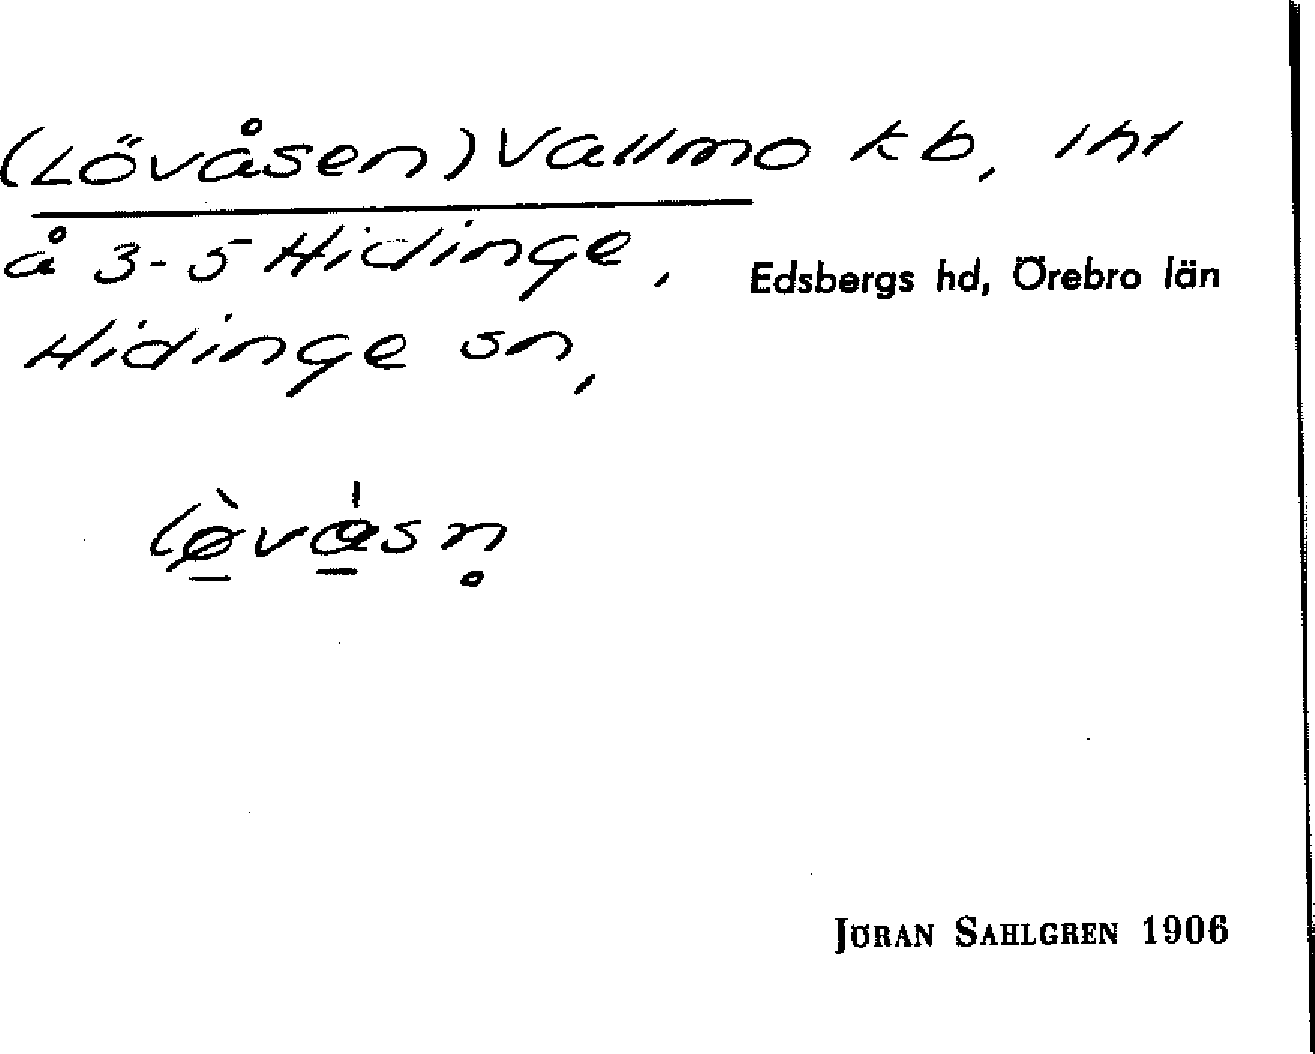 (Lövåsen) Vallmo kb, lht
å 3-5 Hidinge, Edsbergs hd, Örebro län
Hidinge sn,
lø̠̀vå̠sn̥
JÖRAN SAHLGREN 1906